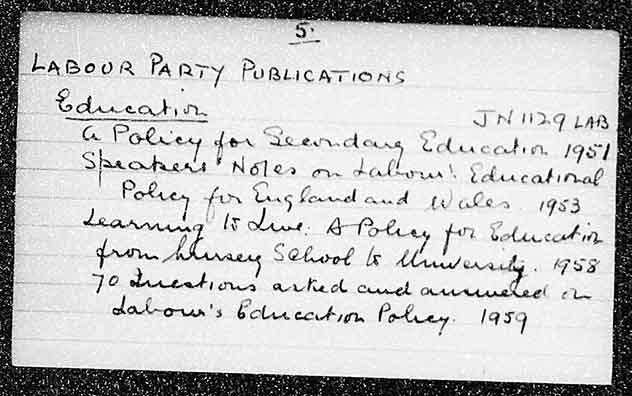 5.
LABOUR PARTY PUBLICATIONS
Education JN 1129 LAB
A Policy for Secondary Education 1951
Speakers' Notes on Labour's Educational
Policy for England and Wales. 1953
Learning to Live. A Policy for Education
from Nursery School to University. 1958
70 Questions asked and answered on
Labour's Education Policy. 1959